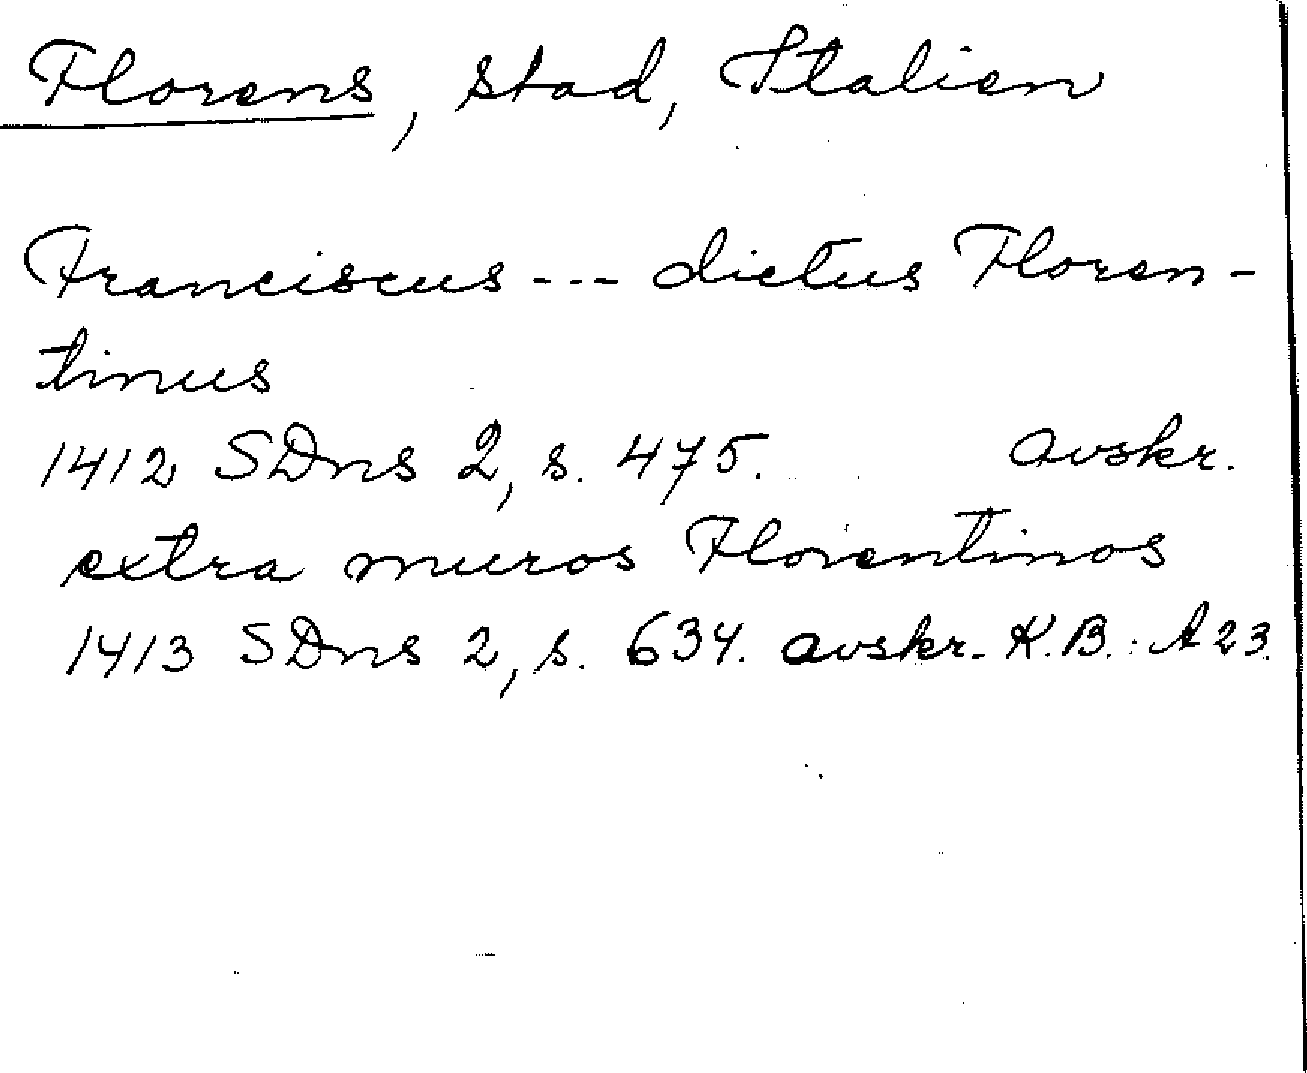 Florens, stad, Italien
Franciscus --- dictus Floren-
tinus
1412 SDns 2, s. 475. avskr.
extra muros Florentinos
1413 SDns 2, s. 634. avskr. K.B.: A 23.